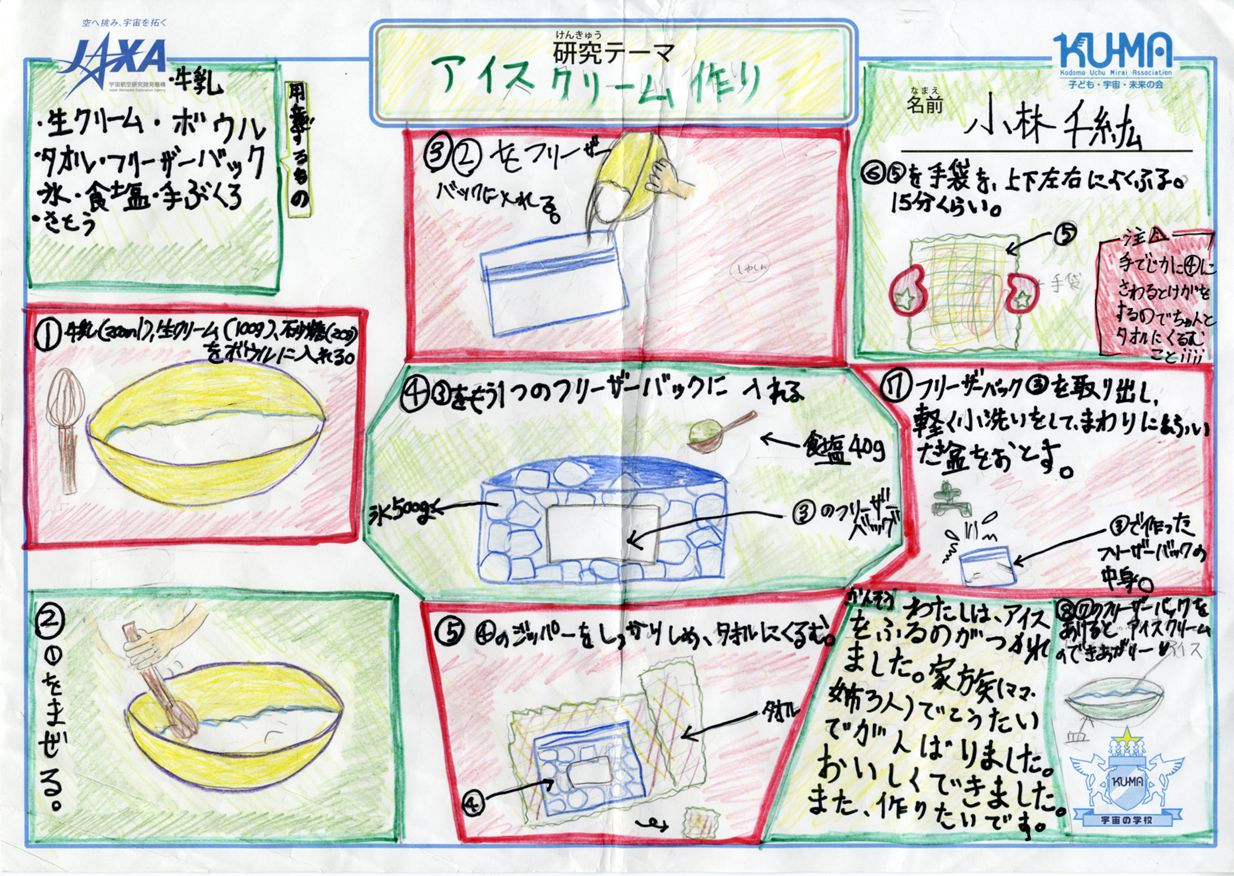 空へ挑み、宇宙を拓く
JAXA
宇宙航空研究開発機構
Japan Aerospace Exploration Agency
けんきゅう
研究テーマ
アイスクリーム作り
KU-MA
Kodomo Uchu Mirai Association
子ども・宇宙・未来の会
なまえ
名前
小林 千紘
用意するもの
・牛乳
・生クリーム・ボウル
・タオル・フリーザーバック
・氷・食塩・手ぶくろ
・さとう
① 牛乳(200ml),生クリーム(100g)、砂糖(20g)
をボウルに入れる。
② ①をまぜる。
③ ②をフリーザー
バックに入れる。
しゃしん
④ ③をもう1つのフリーザーバックに入れる
食塩40g
氷500g
③のフリーザー
バッグ
⑤ ④のジッパーをしっかりしめ、タオルにくるむ。
タオル
④
⑥ ⑤を手袋を、上下左右によくふる。
15分くらい。
⑤
手袋
注
手でじかに④に
さわるとけがを
するのでちゃんと
タオルにくるむ
こと!!!!
⑦ フリーザバック③を取り出し、
軽く小洗いをして、まわりについ
た塩をおとす。
③で作った
フリーザーバックの
中身。
かんそう
わたしは、アイス
をふるのがつかれ
ました。家族(ママ・
姉3人)でこうたい
でがんばりました。
おいしくできました。
また、作りたいです。
⑧ ⑦のフリーザーバックを
あけると、アイスクリーム
のできあがりー!
アイス
皿
KUMA
宇宙の学校